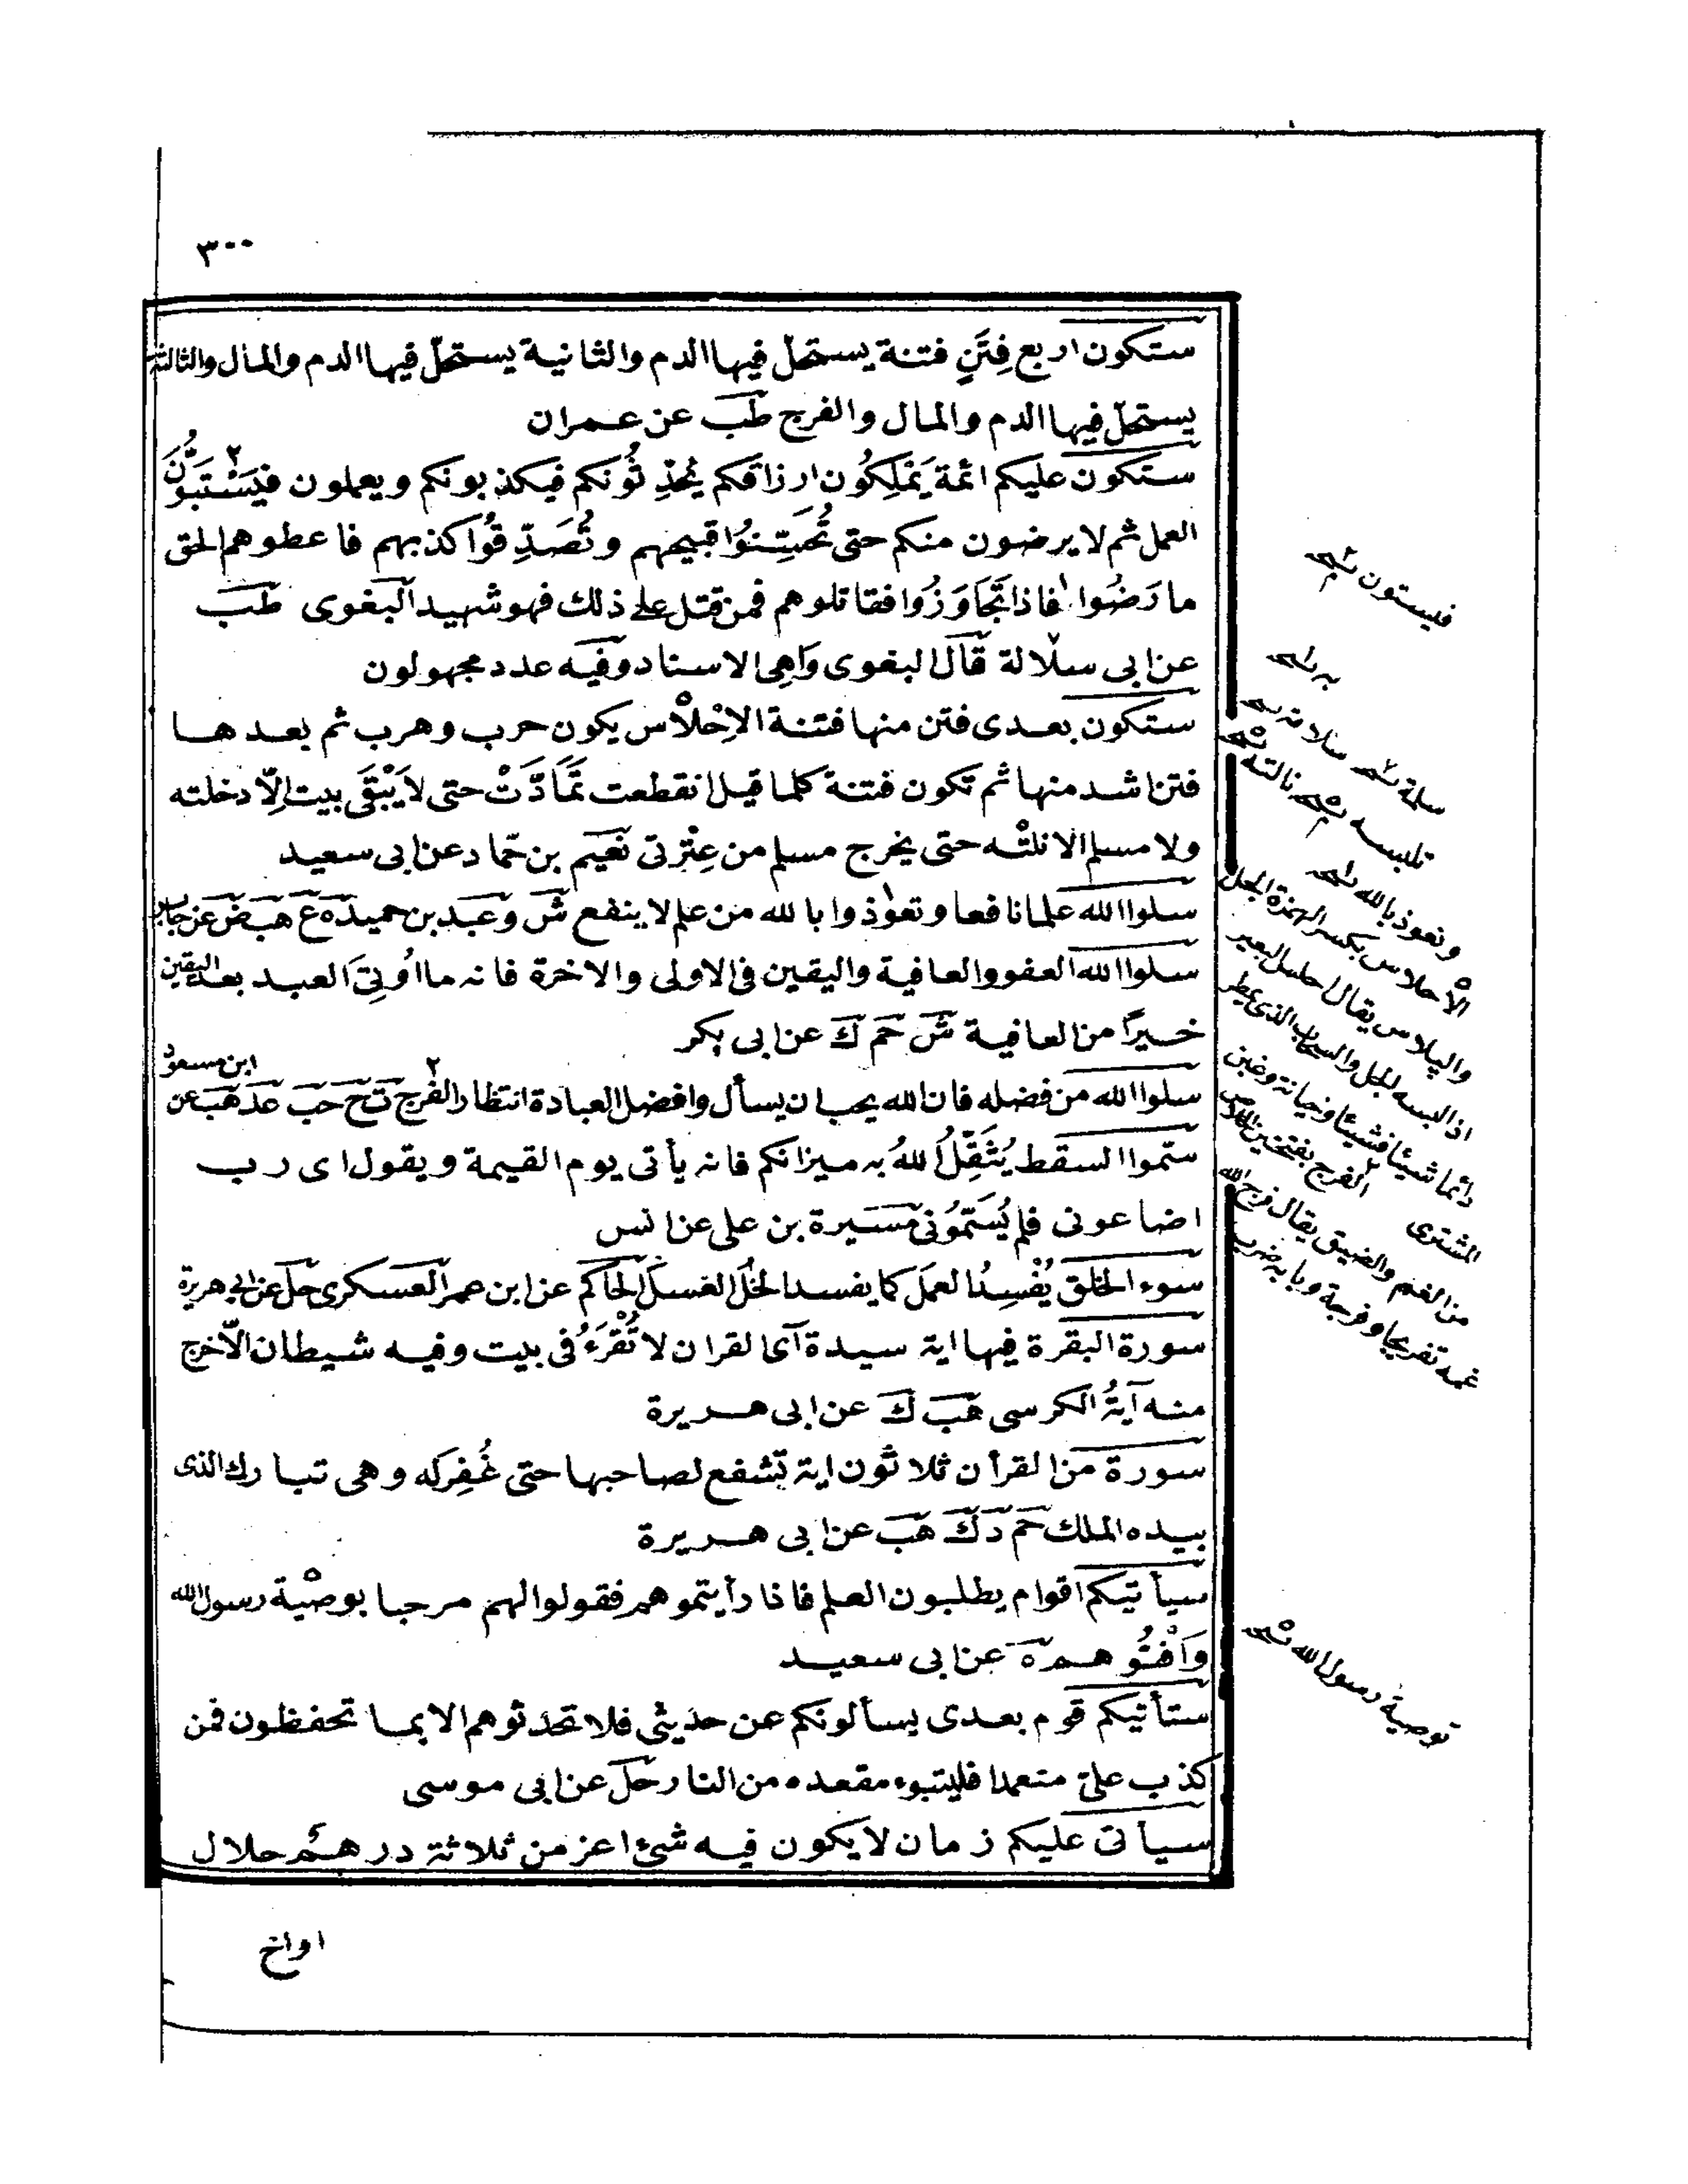 ٣٠٠
ستكون اربع فِتَنٍ فتنة يستحلّ فيها الدم والثانية يستحلّ فيها الدم والمال والثالثة
يستحلّ فيها الدم والمال والفرج طب عن عمران
ستكون عليكم ائمة يَمْلِكُون ارزاقكم يُحَدِّثُونكم فيكذبونكم ويعملون فيَسْتَبُّونَ
العمل ثم لا يرضون منكم حتى تُحَسِّنُوا قبيحهم وتُصَدِّقُوا كذبهم فاعطوهم الحق
ما رَضُوا فاذا تَجَاوَزُوا فقاتلوهم فمن قتل على ذلك فهو شهيد البغوى طب
عن ابى سلالة قال البغوى وَاهِى الاسناد وفيه عدد مجهولون
ستكون بعدى فتن منها فتنة الاِحْلاس يكون حرب وهرب ثم بعدها
فتن اشد منها ثم تكون فتنة كلما قيل انقطعت تَمَادَّتْ حتى لا يَبْقَى بيت الاّ دخلته
ولا مسلم الا نلته حتى يخرج مسلم من عِتْرتى نعيم بن حماد عن ابى سعيد
سلوا الله علما نافعا وتعوذوا بالله من علم لا ينفع ش وعبد بن حميد ه ع هب ض عن جابر
سلوا الله العفو والعافية واليقين فى الاولى والاخرة فانه ما اُوتِىَ العبد بعد اليقين
خيرًا من العافية ش حم ك عن ابى بكر
سلوا الله من فضله فان الله يحب ان يسأل وافضل العبادة انتظار الفرج ت ح حب عد هب عن ابن مسعود
سمّوا السقط يُثَقِّلُ اللهُ به ميزانكم فانه يأتى يوم القيمة ويقول اى رب
اضاعونى فلم يُسَمُّونى مسيرة بن على عن انس
سوء الخلق يُفْسِدُ العمل كما يفسد الخلُّ العسل الحاكم عن ابن عمر العسكرى حل عن ابى هريرة
سورة البقرة فيها اية سيدة آى القران لا تُقْرَءُ فى بيت وفيه شيطان الاّ خرج
منه آيةُ الكرسى هب ك عن ابى هريرة
سورة من القرأن ثلاثون اية تشفع لصاحبها حتى غُفِر له وهى تبارك الذى
بيده الملك حم د ك هب عن ابى هريرة
سيأتيكم اقوام يطلبون العلم فاذا رأيتموهم فقولوا لهم مرحبا بوصية رسول الله
وَاَفْتُوهم ه عن ابى سعيد
ستأتيكم قوم بعدى يسألونكم عن حديثى فلا تحدثوهم الا بما تحفظون فمن
كذب علىّ متعمدا فليتبوء مقعده من النار حل عن ابى موسى
سيأتى عليكم زمان لا يكون فيه شئ اعز من ثلاثة درهم حلال
او اخ
فليستون
به
سلمة
سلامة
تلبسه
نالته
وتعوذ بالله
الاحلاس بكسر الهمزة
والپلاس يقال احلس البعير
اذا البسه الحلس والسحاب الذى يمطر
دائما شيئا فشيئا وخيانة وغبن
المشترى
الفرج بفتحتين
من الغم والضيق يقال فرج الله
غمه تفريجا وفرجة وبابه ضرب
توصية رسول الله